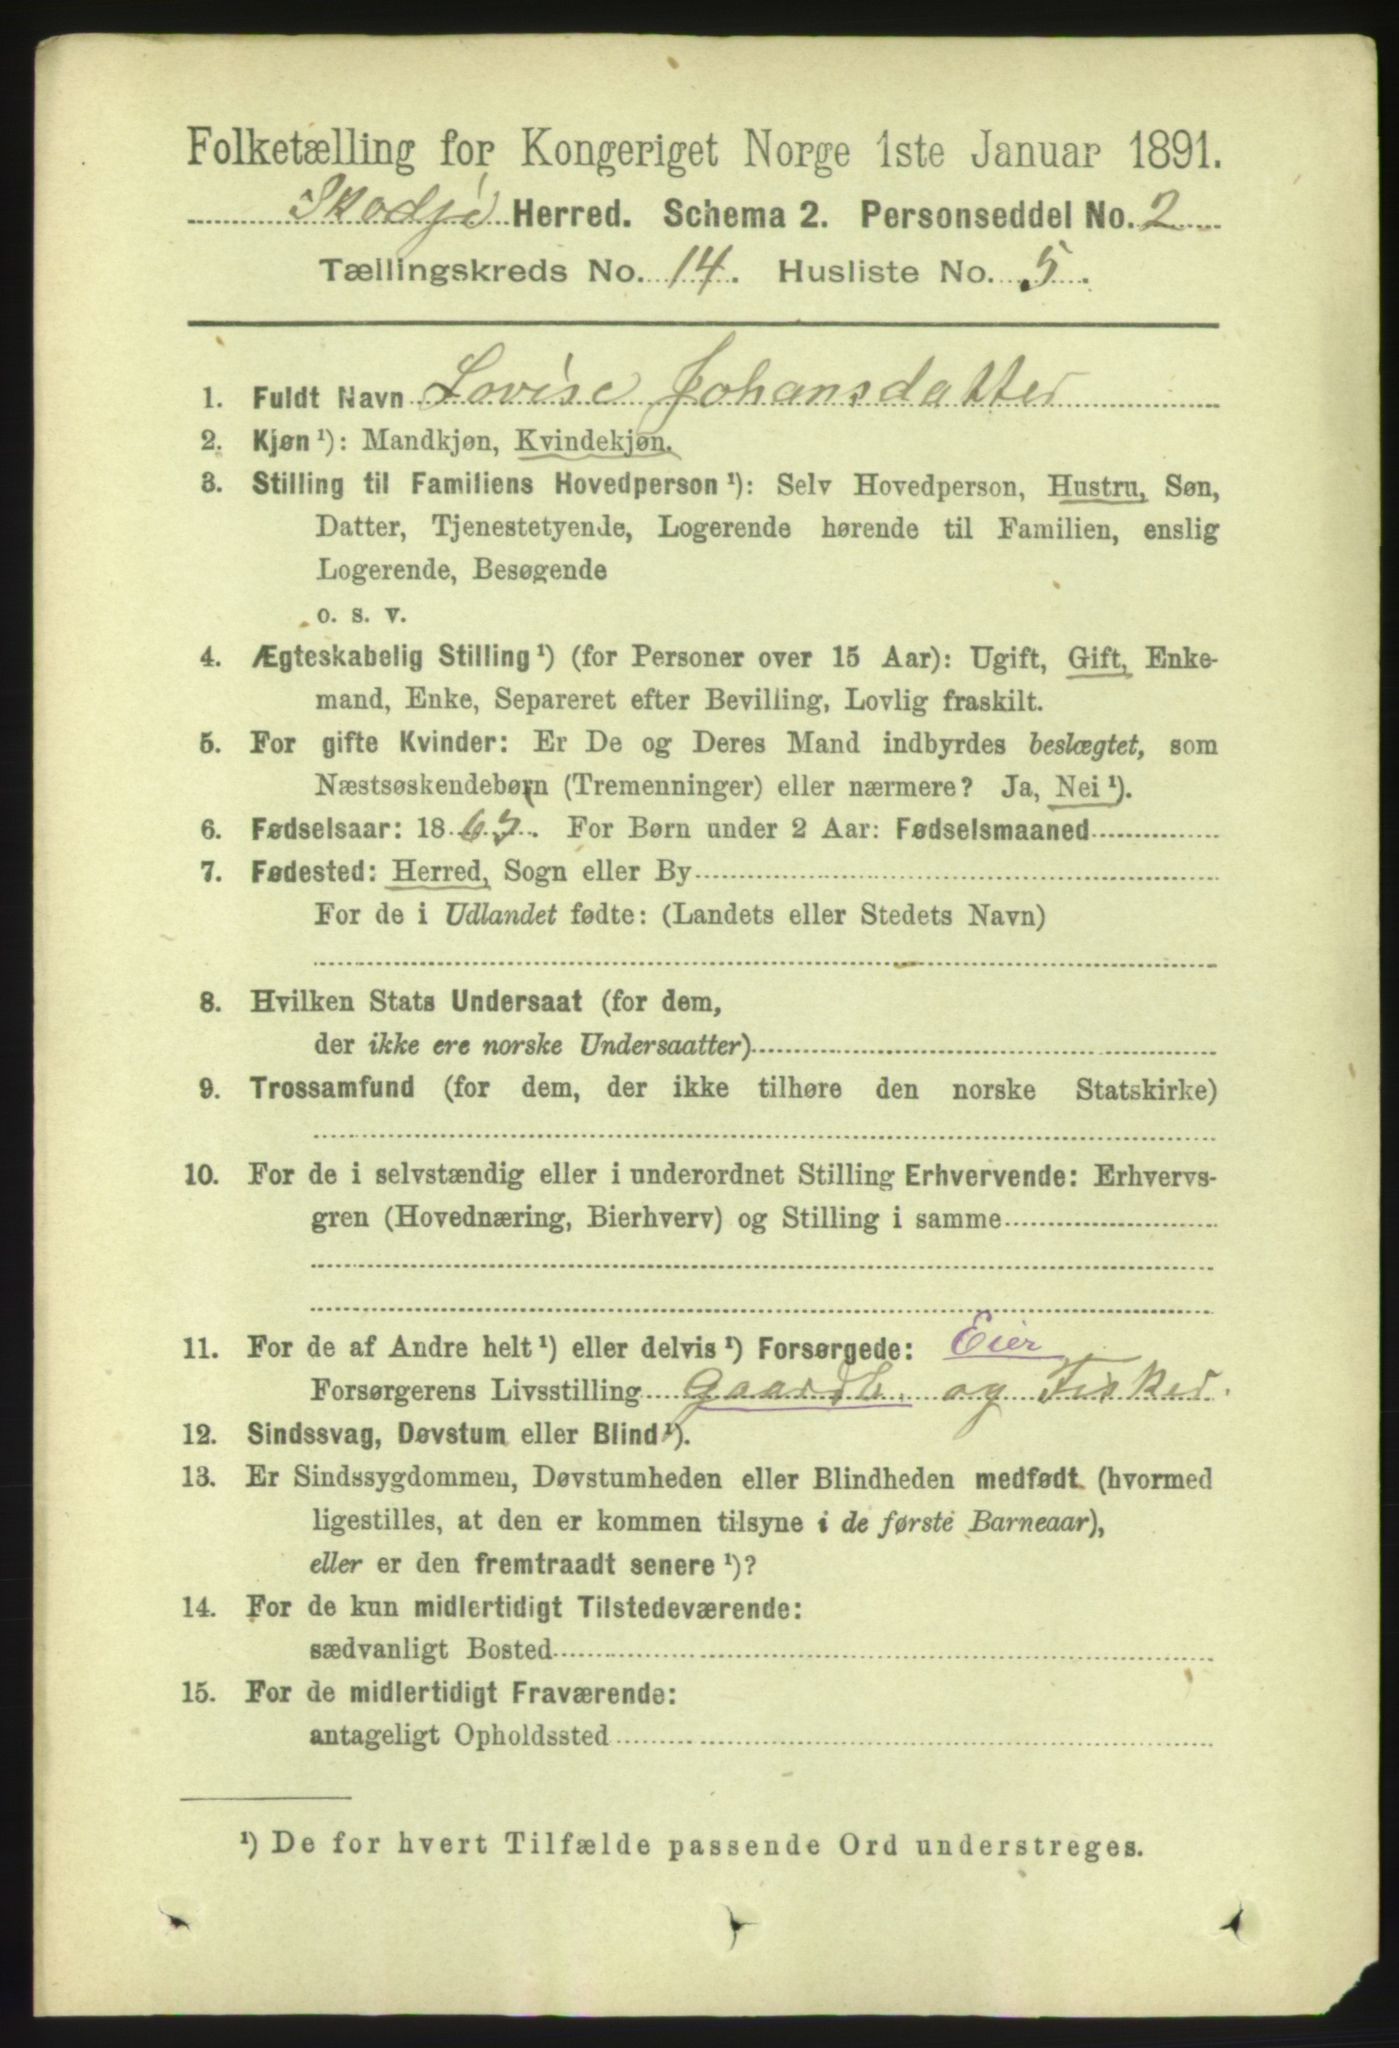 Folketælling for Kongeriget Norge 1ste Januar 1891.
Skodje Herred. Schema 2. Personseddel No. 2
Tællingskreds No. 14. Husliste No. 5.
1. Fuldt Navn Lovise Johansdatter
2. Kjøn ¹): Mandkjøn, Kvindekjøn.
3. Stilling til Familiens Hovedperson ¹): Selv Hovedperson, Hustru, Søn,
Datter, Tjenestetyende, Logerende hørende til Familien, enslig
Logerende, Besøgende
o. s. v.
4. Ægteskabelig Stilling ¹) (for Personer over 15 Aar): Ugift, Gift, Enke-
mand, Enke, Separeret efter Bevilling, Lovlig fraskilt.
5. For gifte Kvinder: Er De og Deres Mand indbyrdes beslægtet, som
Næstsøskendebørn (Tremenninger) eller nærmere? Ja, Nei ¹).
6. Fødselsaar: 18 For Børn under 2 Aar: Fødselsmaaned
7. Fødested: Herred, Sogn eller By
For de i Udlandet fødte: (Landets eller Stedets Navn)
8. Hvilken Stats Undersaat (for dem,
der ikke ere norske Undersaatter)
9. Trossamfund (for dem, der ikke tilhøre den norske Statskirke)
10. For de i selvstændig eller i underordnet Stilling Erhvervende: Erhvervs-
gren (Hovednæring, Bierhverv) og Stilling i samme
11. For de af Andre helt ¹) eller delvis ¹) Forsørgede: Eier
Forsørgerens Livsstilling Gaardb. og Fisker.
12. Sindssvag, Døvstum eller Blind ¹).
13. Er Sindssygdommen, Døvstumheden eller Blindheden medfødt (hvormed
ligestilles, at den er kommen tilsyne i de første Barneaar),
eller er den fremtraadt senere ¹)?
14. For de kun midlertidigt Tilstedeværende:
sædvanligt Bosted
15. For de midlertidigt Fraværende:
antageligt Opholdssted
¹) De for hvert Tilfælde passende Ord understreges.